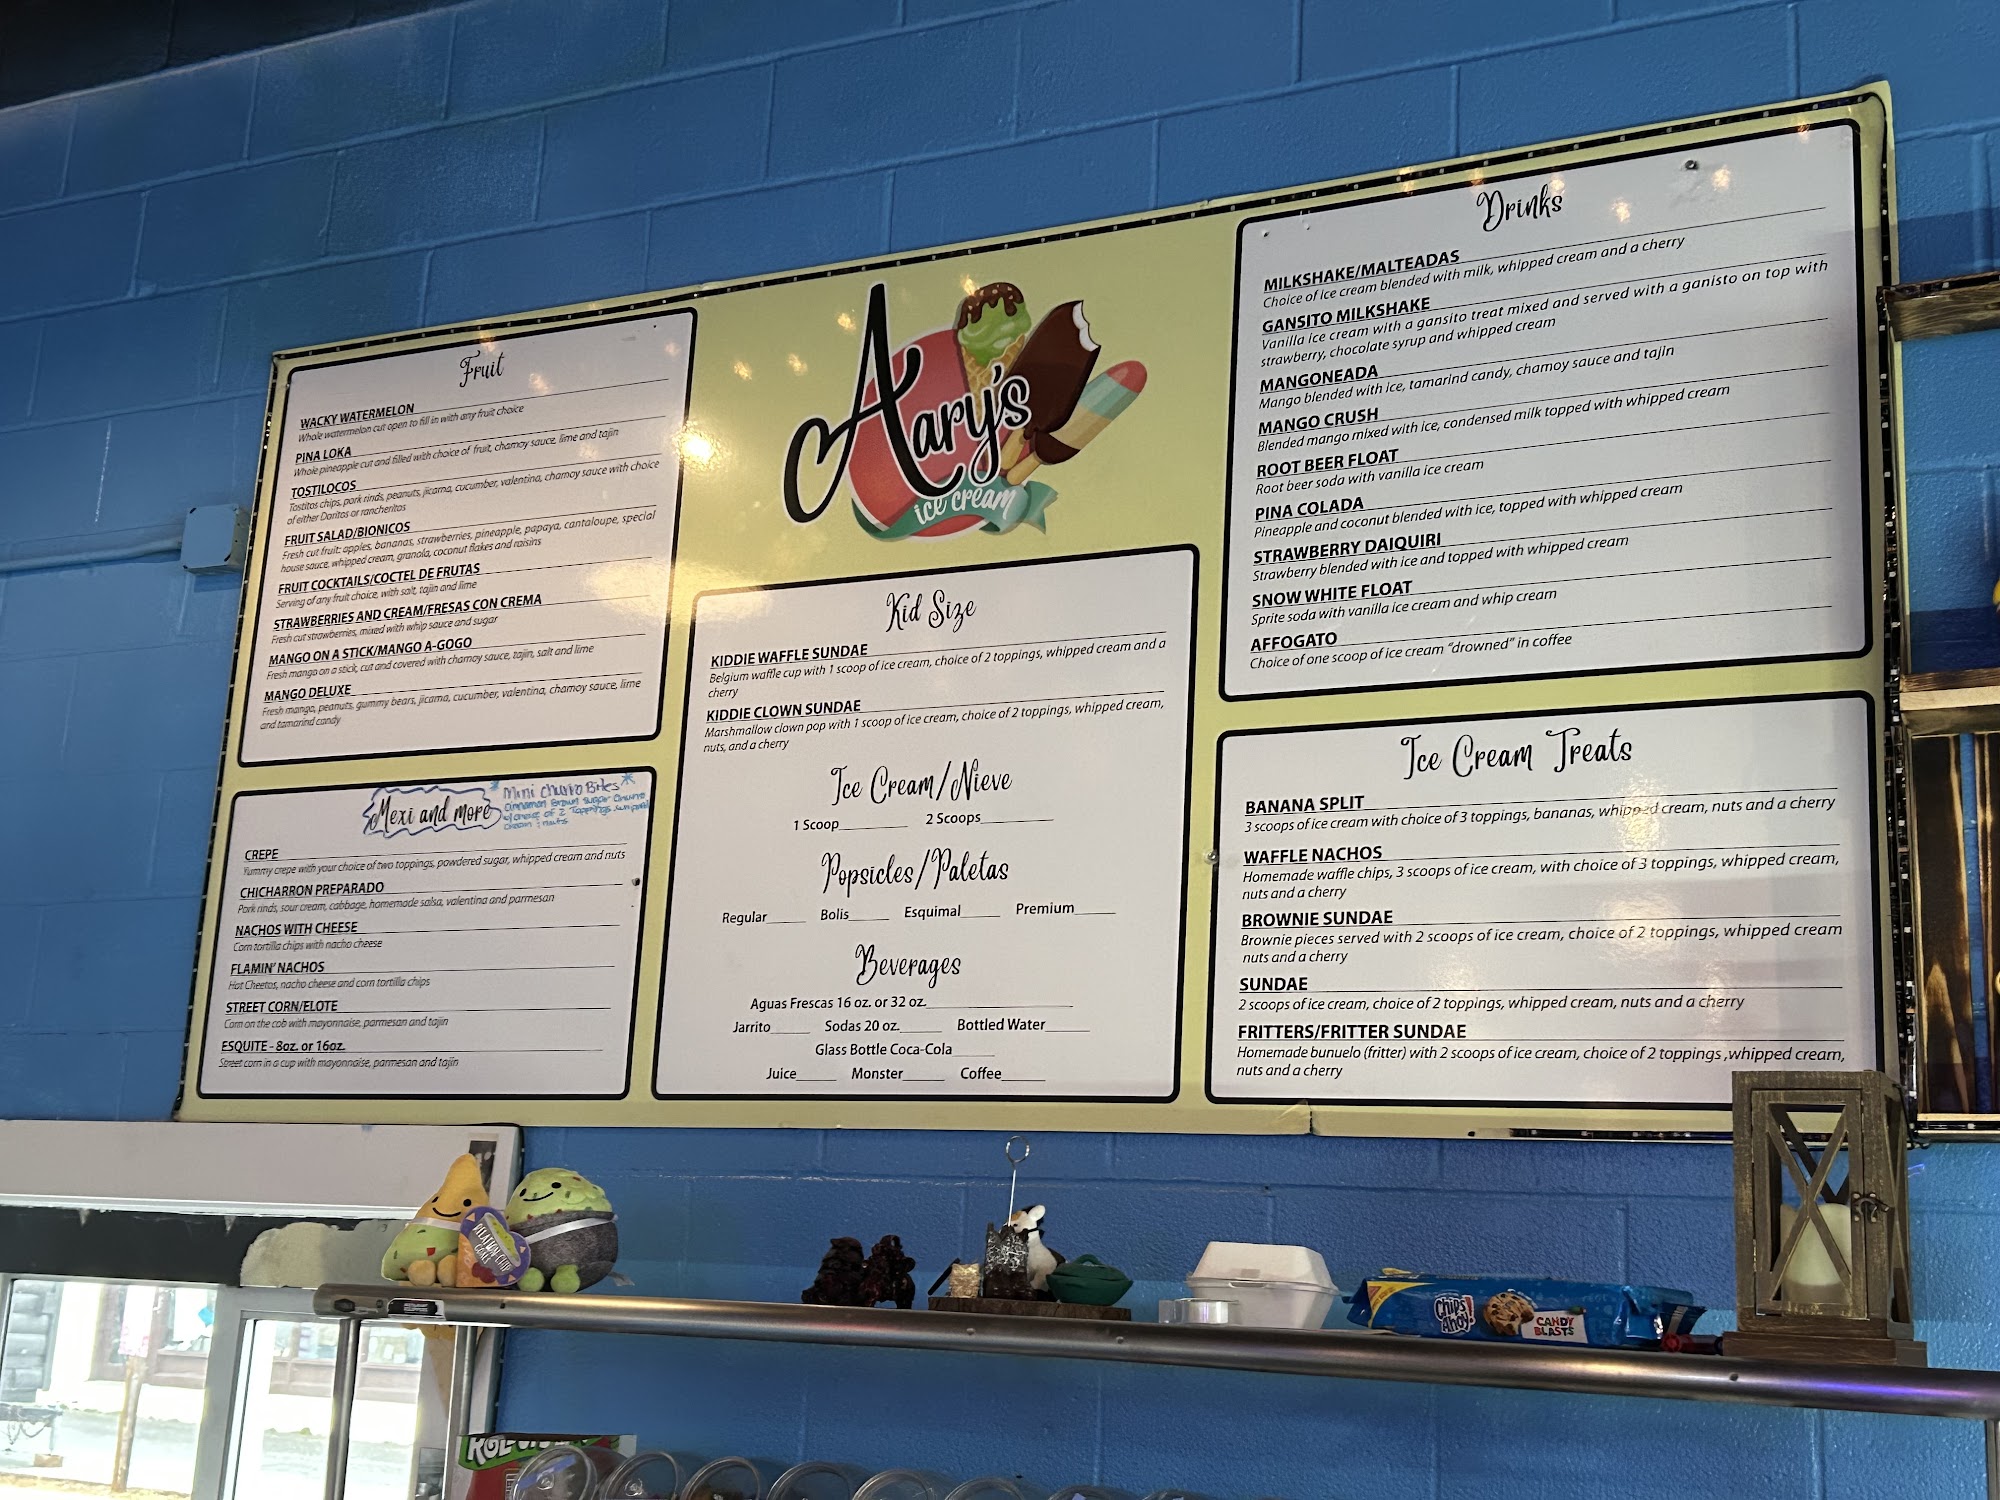 Fruit
WACKY WATERMELON
Whole watermelon cut open to fill in with any fruit choice
PINA LOKA
Whole pineapple cut and filled with choice of fruit, chamoy sauce, lime and tajin
TOSTILOCOS
Tostitos chips, pork rinds, peanuts, jicama, cucumber, valentina, chamoy sauce with choice
of either Doritos or rancheritos
FRUIT SALAD/BIONICOS
Fresh cut fruit: apples, bananas, strawberries, pineapple, papaya, cantaloupe, special
house sauce, whipped cream, granola, coconut flakes and raisins
FRUIT COCKTAILS/COCTEL DE FRUTAS
Serving of any fruit choice, with salt, tajin and lime
STRAWBERRIES AND CREAM/FRESAS CON CREMA
Fresh cut strawberries, mixed with whip sauce and sugar
MANGO ON A STICK/MANGO A-GOGO
Fresh mango on a stick, cut and covered with chamoy sauce, tajin, salt and lime
MANGO DELUXE
Fresh mango, peanuts, gummy bears, jicama, cucumber, valentina, chamoy sauce, lime
and tamarind candy
Mexi and more
*Mini Churro Bites*
cinnamon Brown sugar churro
w/ choice of 2 Toppings, whipped
cream & nuts
CREPE
Yummy crepe with your choice of two toppings, powdered sugar, whipped cream and nuts
CHICHARRON PREPARADO
Pork rinds, sour cream, cabbage, homemade salsa, valentina and parmesan
NACHOS WITH CHEESE
Corn tortilla chips with nacho cheese
FLAMIN' NACHOS
Hot Cheetos, nacho cheese and corn tortilla chips
STREET CORN/ELOTE
Corn on the cob with mayonnaise, parmesan and tajin
ESQUITE - 8oz. or 16oz.
Street corn in a cup with mayonnaise, parmesan and tajin
Aary's
ice cream
Kid Size
KIDDIE WAFFLE SUNDAE
Belgium waffle cup with 1 scoop of ice cream, choice of 2 toppings, whipped cream and a
cherry
KIDDIE CLOWN SUNDAE
Marshmallow clown pop with 1 scoop of ice cream, choice of 2 toppings, whipped cream,
nuts, and a cherry
Ice Cream/Nieve
1 Scoop 2 Scoops
Popsicles/Paletas
Regular Bolis Esquimal Premium
Beverages
Aguas Frescas 16 oz. or 32 oz.
Jarrito Sodas 20 oz. Bottled Water
Glass Bottle Coca-Cola
Juice Monster Coffee
Drinks
MILKSHAKE/MALTEADAS
Choice of ice cream blended with milk, whipped cream and a cherry
GANSITO MILKSHAKE
Vanilla ice cream with a gansito treat mixed and served with a ganisto on top with
strawberry, chocolate syrup and whipped cream
MANGONEADA
Mango blended with ice, tamarind candy, chamoy sauce and tajin
MANGO CRUSH
Blended mango mixed with ice, condensed milk topped with whipped cream
ROOT BEER FLOAT
Root beer soda with vanilla ice cream
PINA COLADA
Pineapple and coconut blended with ice, topped with whipped cream
STRAWBERRY DAIQUIRI
Strawberry blended with ice and topped with whipped cream
SNOW WHITE FLOAT
Sprite soda with vanilla ice cream and whip cream
AFFOGATO
Choice of one scoop of ice cream "drowned" in coffee
Ice Cream Treats
BANANA SPLIT
3 scoops of ice cream with choice of 3 toppings, bananas, whipped cream, nuts and a cherry
WAFFLE NACHOS
Homemade waffle chips, 3 scoops of ice cream, with choice of 3 toppings, whipped cream,
nuts and a cherry
BROWNIE SUNDAE
Brownie pieces served with 2 scoops of ice cream, choice of 2 toppings, whipped cream
nuts and a cherry
SUNDAE
2 scoops of ice cream, choice of 2 toppings, whipped cream, nuts and a cherry
FRITTERS/FRITTER SUNDAE
Homemade bunuelo (fritter) with 2 scoops of ice cream, choice of 2 toppings ,whipped cream,
nuts and a cherry
RELATION CHIP
GOALS
Chips
Ahoy!
CANDY
BLASTS